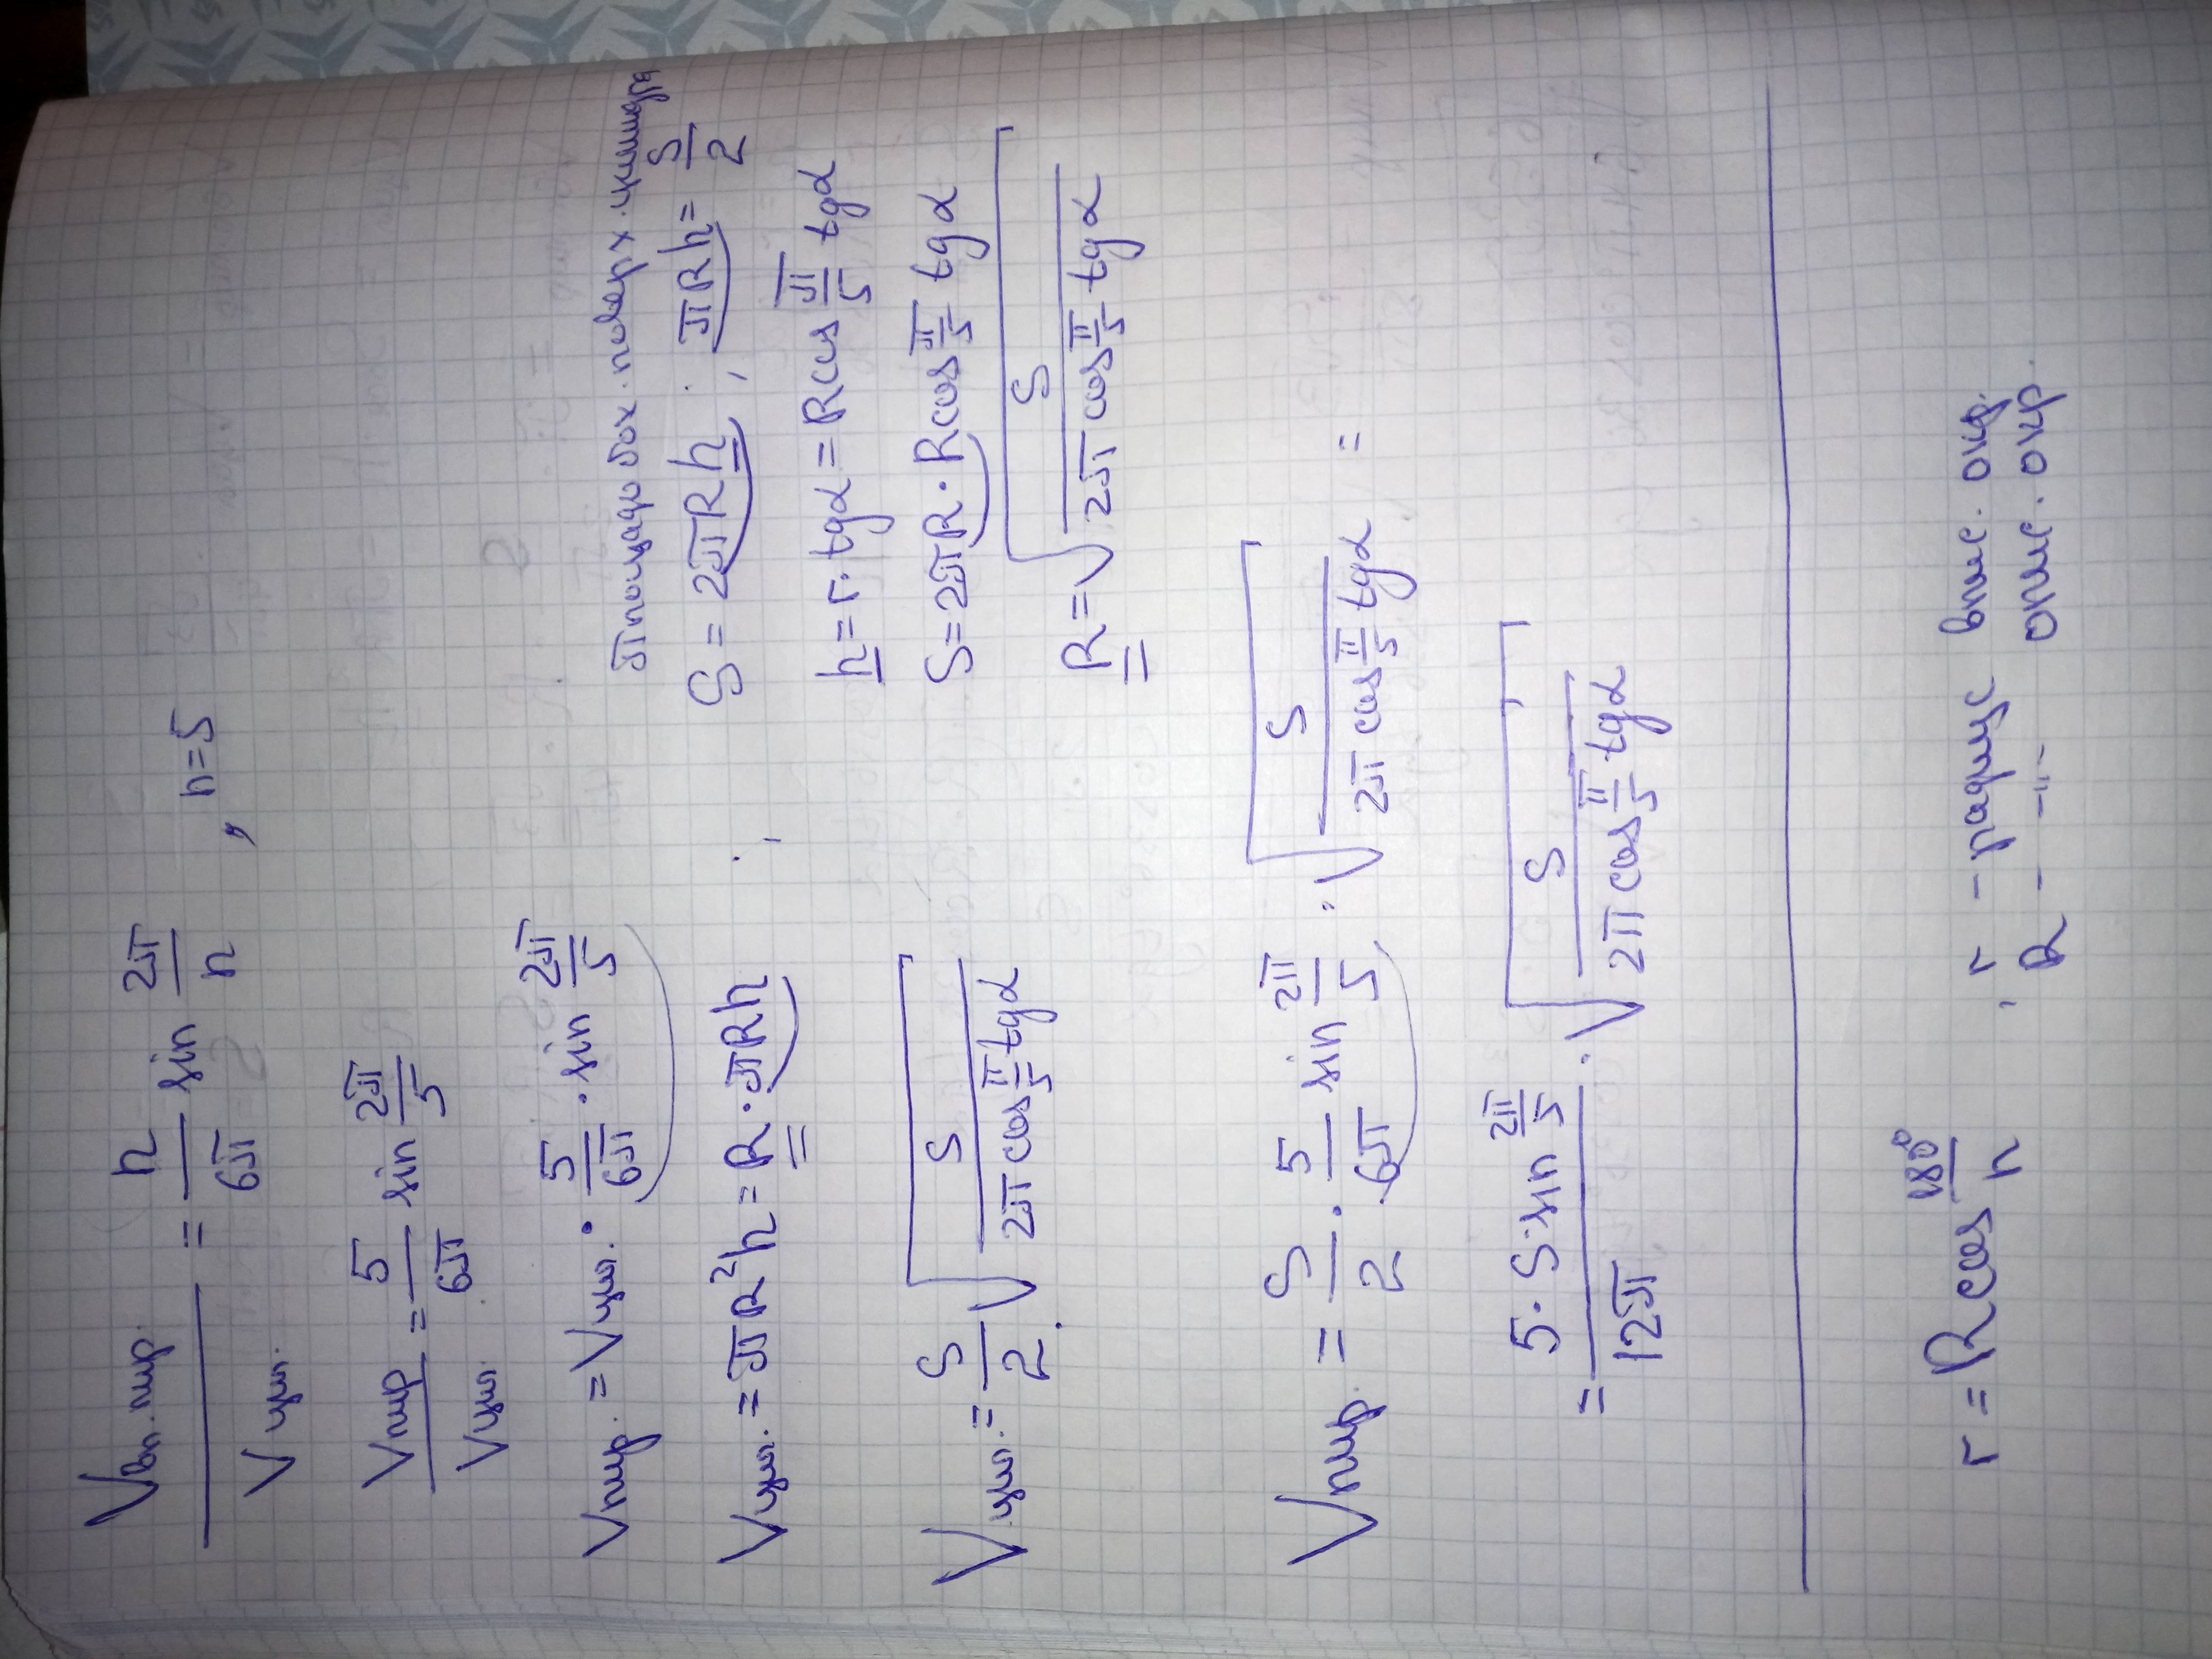 Vвп.пир. / Vцил. = n/6π sin 2π/n , n=5
Vпир / Vцил. = 5/6π sin 2π/5
Vпир. = Vцил. · 5/6π · sin 2π/5
Vцил. = πR²h = R · πRh
Vцил. = S/2 · √(S / 2π cos π/5 tgα)
площадь бок. поверх. цилиндра
S = 2πRh ; πRh = S/2
h = r · tgα = Rcos π/5 tgα
S = 2πR · Rcos π/5 tgα
R = √(S / 2π cos π/5 tgα)
Vпир. = S/2 · 5/6π sin 2π/5 · √(S / 2π cos π/5 tgα) =
= 5 · S · sin 2π/5 / 12π · √(S / 2π cos π/5 tgα)
r = Rcos 180°/n , r - радиус впис. окр.
R - -"- опис. окр.